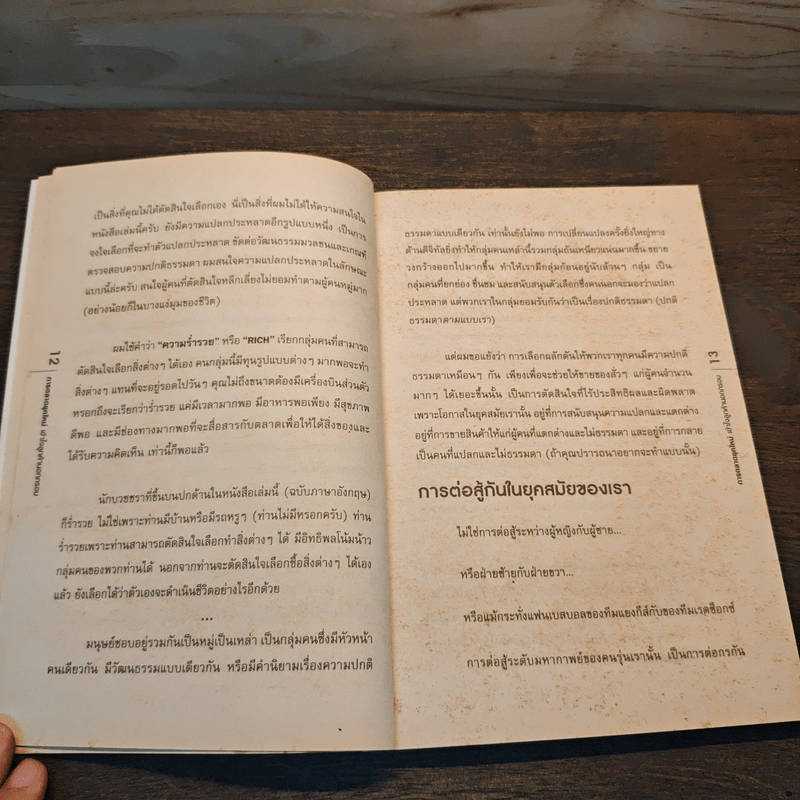 เป็นสิ่งที่คุณไม่ได้ตัดสินใจเลือกเอง นี่เป็นสิ่งที่ผมไม่ได้ให้ความสนใจใน
หนังสือเล่มนี้ครับ ยังมีความแปลกประหลาดอีกรูปแบบหนึ่ง เป็นการ
จงใจเลือกที่จะทำตัวแปลกประหลาด ขัดต่อวัฒนธรรมมวลชนและเกณฑ์
ตรวจสอบความปกติธรรมดา ผมสนใจความแปลกประหลาดในลักษณะ
แบบนี้ล่ะครับ สนใจผู้คนที่ตัดสินใจหลีกเลี่ยงไม่ยอมทำตามผู้คนหมู่มาก
(อย่างน้อยก็ในบางแง่มุมของชีวิต)
ผมใช้คำว่า "ความร่ำรวย" หรือ "RICH" เรียกกลุ่มคนที่สามารถ
ตัดสินใจเลือกสิ่งต่างๆ ได้เอง คนกลุ่มนี้มีทุนรูปแบบต่างๆ มากพอจะทำ
สิ่งต่างๆ แทนที่จะอยู่รอดไปวันๆ คุณไม่ถึงขนาดต้องมีเครื่องบินส่วนตัว
หรอกถึงจะเรียกว่าร่ำรวย แค่มีเวลามากพอ มีอาหารพอเพียง มีสุขภาพ
ดีพอ และมีช่องทางมากพอที่จะสื่อสารกับตลาดเพื่อให้ได้สิ่งของและ
ได้รับความคิดเห็น เท่านี้ก็พอแล้ว
นักบวชชราที่ขึ้นบนปกด้านในหนังสือเล่มนี้ (ฉบับภาษาอังกฤษ)
ก็ร่ำรวย ไม่ใช่เพราะท่านมีบ้านหรือมีรถหรูๆ (ท่านไม่มีหรอกครับ) ท่าน
ร่ำรวยเพราะท่านสามารถตัดสินใจเลือกทำสิ่งต่างๆ ได้ มีอิทธิพลโน้มน้าว
กลุ่มคนของพวกท่านได้ นอกจากท่านจะตัดสินใจเลือกซื้อสิ่งต่างๆ ได้เอง
แล้ว ยังเลือกได้ว่าตัวเองจะดำเนินชีวิตอย่างไรอีกด้วย
...
มนุษย์ชอบอยู่รวมกันเป็นหมู่เป็นเหล่า เป็นกลุ่มคนซึ่งมีหัวหน้า
คนเดียวกัน มีวัฒนธรรมแบบเดียวกัน หรือมีคำนิยามเรื่องความปกติ
12
การตลาดยุคใหม่ เข้าใจลูกค้านอกกรอบ
ธรรมดาแบบเดียวกัน เท่านั้นยังไม่พอ การเปลี่ยนแปลงครั้งยิ่งใหญ่ทาง
ด้านดิจิทัลยิ่งทำให้กลุ่มคนเหล่านี้รวมกลุ่มกันเหนียวแน่นมากขึ้น ขยาย
วงกว้างออกไปมากขึ้น ทำให้เรามีกลุ่มก้อนอยู่นับล้านๆ กลุ่ม เป็น
กลุ่มคนที่ยกย่อง ชื่นชม และสนับสนุนตัวเลือกซึ่งคนนอกจะมองว่าแปลก
ประหลาด แต่พวกเราในกลุ่มยอมรับกันว่าเป็นเรื่องปกติธรรมดา (ปกติ
ธรรมดาตามแบบเรา)
แต่ผมขอแย้งว่า การเลือกผลักดันให้พวกเราทุกคนมีความปกติ
ธรรมดาเหมือนๆ กัน เพียงเพื่อจะช่วยให้ขายของขั้วๆ แก่ผู้คนจำนวน
มากๆ ได้เยอะขึ้นนั้น เป็นการตัดสินใจที่ไร้ประสิทธิผลและผิดพลาด
เพราะโอกาสในยุคสมัยเรานั้น อยู่ที่การสนับสนุนความแปลกและแตกต่าง
อยู่ที่การขายสินค้าให้แก่ผู้คนที่แตกต่างและไม่ธรรมดา และอยู่ที่การกลาย
เป็นคนที่แปลกและไม่ธรรมดา (ถ้าคุณปรารถนาอยากจะทำแบบนั้น)
การต่อสู้กันในยุคสมัยของเรา
ไม่ใช่การต่อสู้ระหว่างผู้หญิงกับผู้ชาย...
หรือฝ่ายซ้ายกับฝ่ายขวา...
หรือแม้กระทั่งแฟนเบสบอลของทีมแยงกีส์กับของทีมเรดซ็อกซ์
การต่อสู้ระดับมหากาพย์ของคนรุ่นเรานั้น เป็นการต่อกรกัน
13
การตลาดยุคใหม่ เข้าใจลูกค้านอกกรอบ